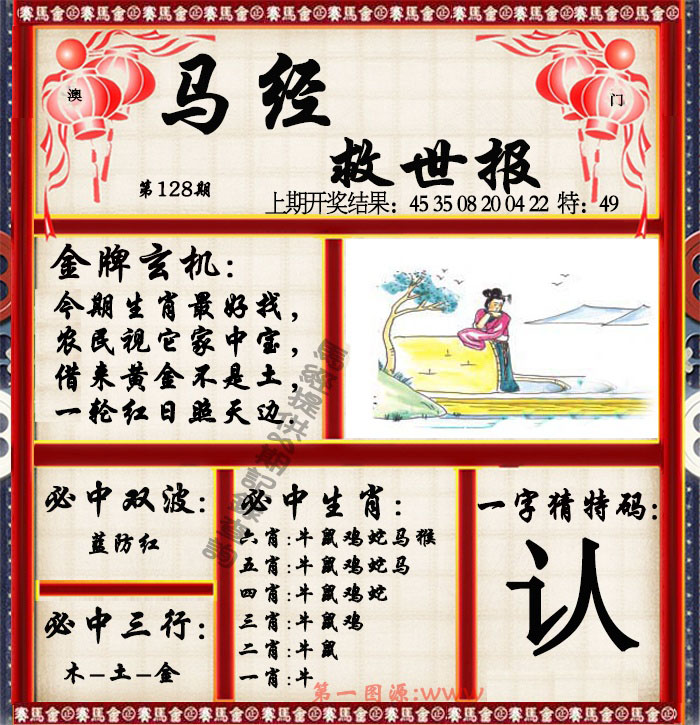 賽馬會㊣賽馬會㊣賽馬會㊣賽馬會㊣賽馬會㊣賽馬會㊣賽馬會㊣賽馬會
澳
门
马经
救世报
第128期
上期开奖结果：45 35 08 20 04 22 特：49
金牌玄机：
今期生肖最好找，
农民视它家中宝，
借来黄金不是土，
一轮红日照天边.
必中双波：
蓝防红
必中三行：
木-土-金
必中生肖：
六肖:牛鼠鸡蛇马猴
五肖:牛鼠鸡蛇马
四肖:牛鼠鸡蛇
三肖:牛鼠鸡
二肖:牛鼠
一肖:牛
一字猜特码:
认
第一图源:www